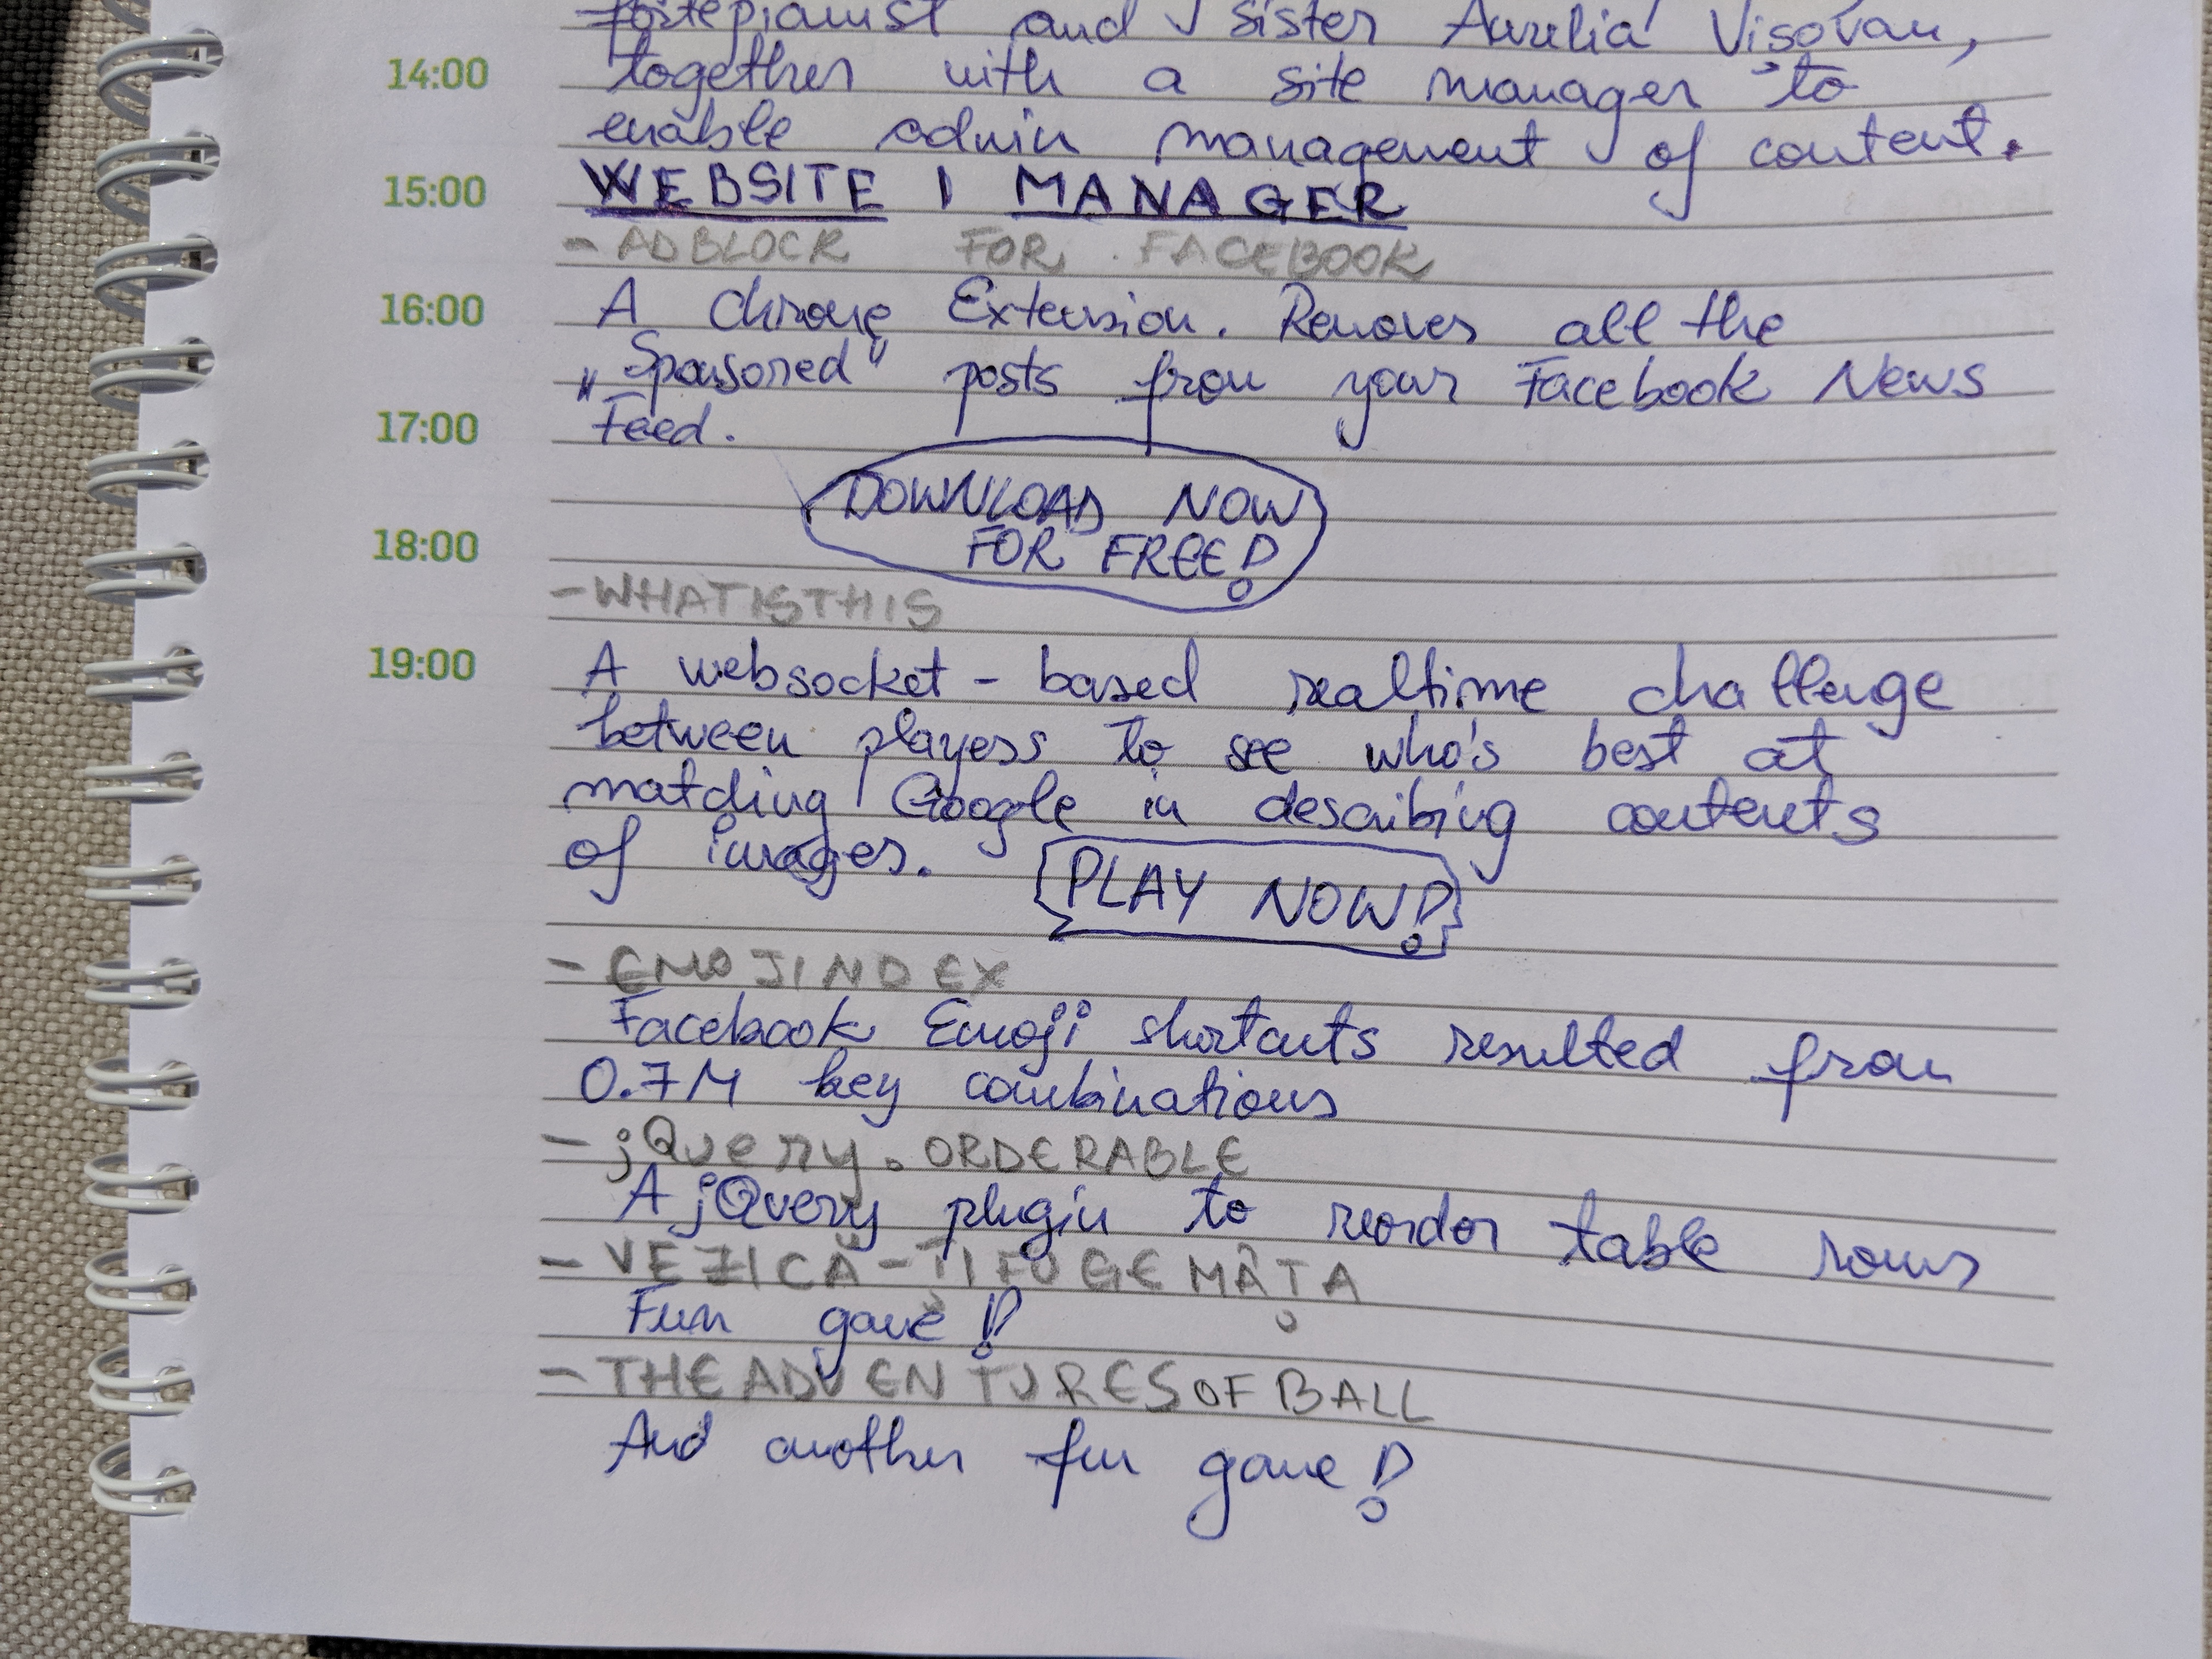 fortepianist and sister Aurelia Visovan,
14:00 together with a site manager to
enable admin management of content.
15:00 WEBSITE | MANAGER
- ADBLOCK FOR FACEBOOK
16:00 A Chrome Extension. Removes all the
„Sponsored" posts from your Facebook News
17:00 Feed.
DOWNLOAD NOW
18:00 FOR FREE!
- WHATISTHIS
19:00 A websocket-based realtime challenge
between players to see who's best at
matching Google in describing contents
of images. PLAY NOW!
- EMOJINDEX
Facebook Emoji shortcuts resulted from
0.7M key combinations
- jQuery.ORDERABLE
A jQuery plugin to reorder table rows
- VEZICĂ-ȚI FUGE MÂȚA
Fun game!
- THE ADVENTURES OF BALL
And another fun game!